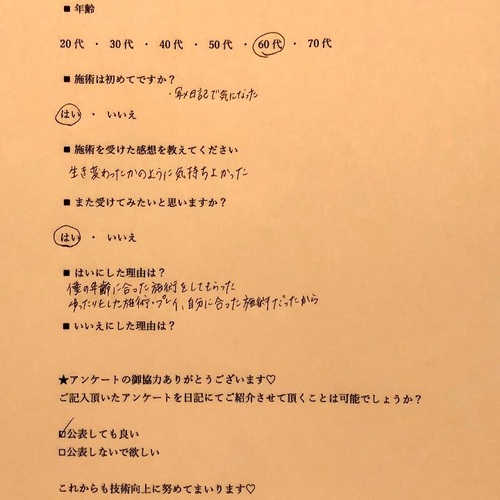 ■ 年齢
20代 ・ 30代 ・ 40代 ・ 50代 ・ 60代 ・ 70代
■ 施術は初めてですか？
・写メ日記で気になった
はい ・ いいえ
■ 施術を受けた感想を教えてください
生き変わったかのように気持ちよかった
■ また受けてみたいと思いますか？
はい ・ いいえ
■ はいにした理由は？
僕の年齢に合った施術をしてもらった
ゆったりとした施術・プレイ、自分に合った施術だったから
■ いいえにした理由は？
★アンケートの御協力ありがとうございます♡
ご記入頂いたアンケートを日記にてご紹介させて頂くことは可能でしょうか？
☑公表しても良い
□公表しないで欲しい
これからも技術向上に努めてまいります♡